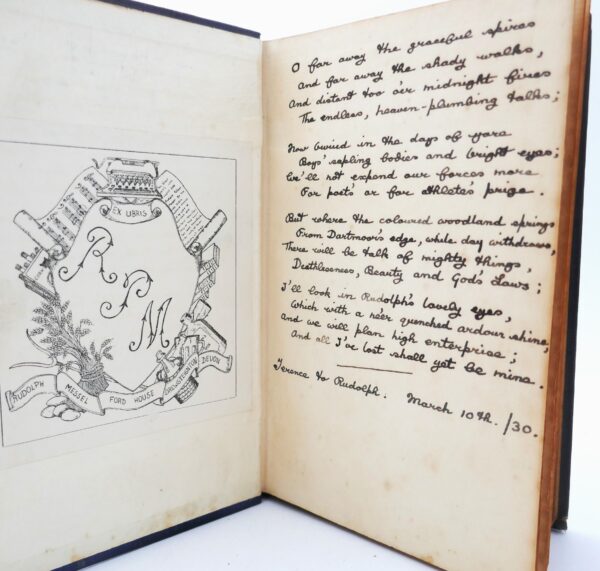 EX LIBRIS
R
P
M
RUDOLPH MESSEL FORD HOUSE DREWSTEIGNTON DEVON
O far away the graceful spires
And far away the shady walks,
And distant too o'er midnight fires
The endless, heaven-plumbing talks;
Now buried in the days of yore
Boys' sapling bodies and bright eyes;
We'll not expend our forces more
For poet's or for athlete's prize.
But where the coloured woodland springs
From Dartmoor's edge, while day withdraws,
There will be talk of mighty things,
Deathlessness, Beauty and God's Laws;
I'll look in Rudolph's lovely eyes,
Which with a ne'er quenched ardour shine,
And we will plan high enterprise;
And all I've lost shall yet be mine.
Terence to Rudolph. March 10th. /30.